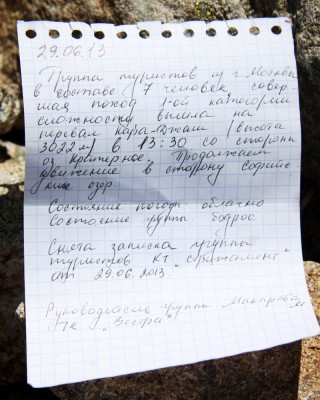 29.06.13
Группа туристов из г. Москвы
в составе 7 человек, совер-
шая поход 1-ой категории
сложности вышла на
перевал Караджаш (высота
3022м) в 13:30 со стороны
оз. Кратерное. Продолжает
движение в сторону софийс-
ких озер.
Состояние погоды: облачно
Состояние группы: бодрое.
Снята записка группы
туристов КТ "
от 29.06.2013.
Руководитель группы Макарова
ТК "Вестра"